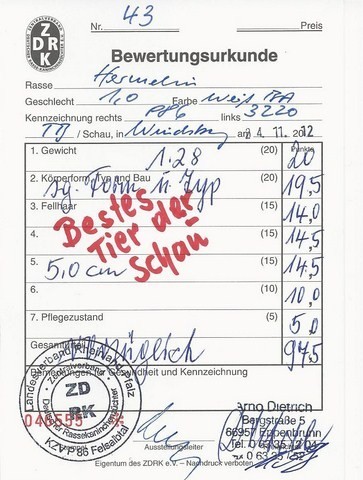 ZDRK
Nr. 43 Preis
Bewertungsurkunde
Rasse Hermelin
Geschlecht 1,0 Farbe Weiß BA
Kennzeichnung rechts P86 links 3220
Schau, in am 24. 11. 2012
1. Gewicht 1.28 (20) Punkte 20
2. Körperform, Typ und Bau (20) 19,5
sg. Form u. Typ
3. Fellhaar (15) 14,0
4. (15) 14,5
5. 5,0 cm (15) 14,5
6. (10) 10,0
7. Pflegezustand (5) 5,0
Gesamturteil vorzüglich 97,5
Bestes
Tier der
Schau
Bemerkungen für Gesundheit und Kennzeichnung
Landesverband Rheinland-Pfalz
Zentralverband
Deutscher Rassekaninchenzüchter
ZD
RK
KZV P 86 Felsalbtal
046555
Arno Dietrich
Bergstraße 5
66957 Eppenbrunn
Ausstellungsleiter
Eigentum des ZDRK e.V. – Nachdruck verboten